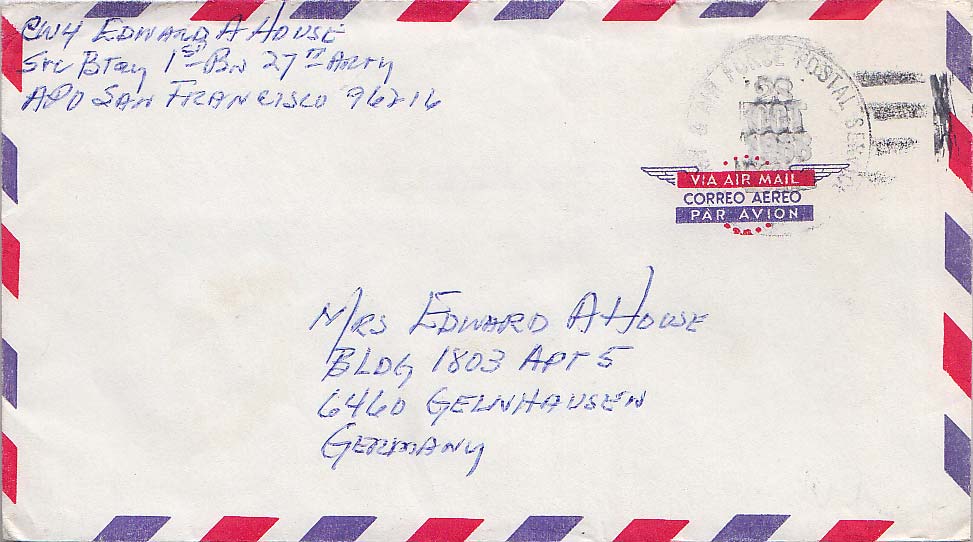 CW4 EDWARD A HOUSE
SVC BTRY 1ST BN 27TH ARTY
APO SAN FRANCISCO 96216
FORCE POSTAL
28
OCT
VIA AIR MAIL
CORREO AEREO
PAR AVION
MRS EDWARD A HOUSE
BLDG 1803 APT 5
6460 GELNHAUSEN
GERMANY